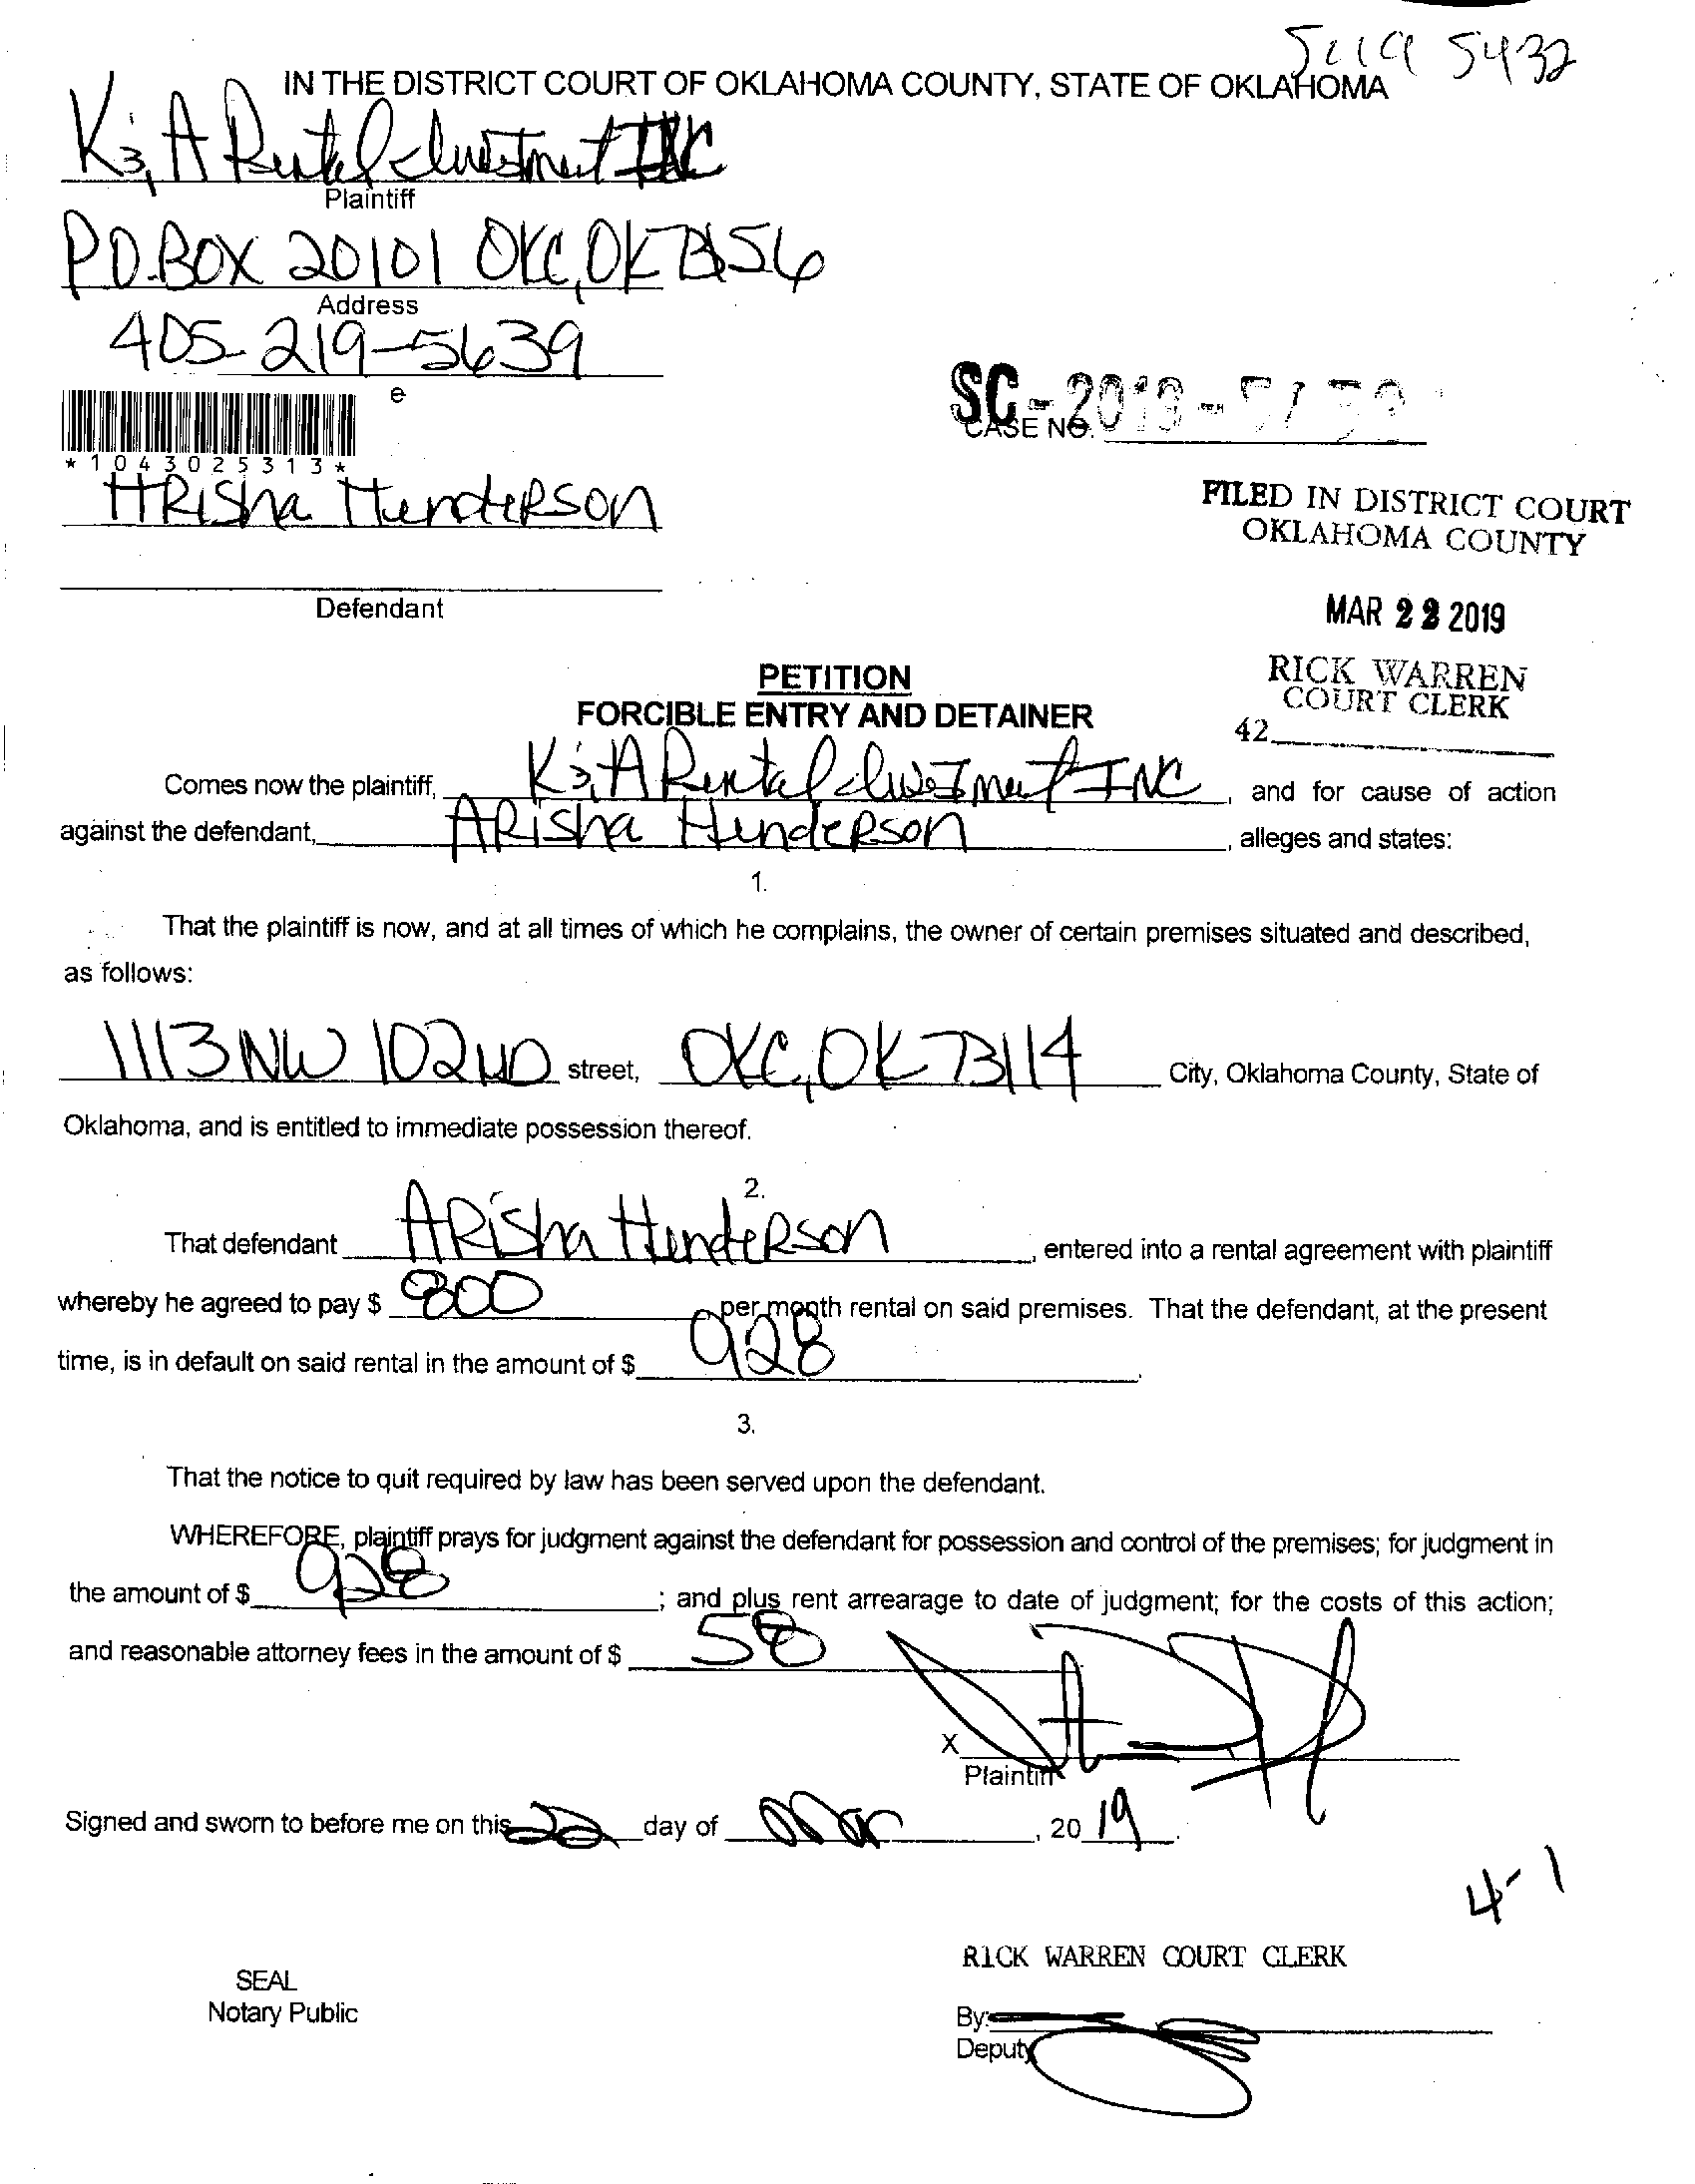 SC19 5432
IN THE DISTRICT COURT OF OKLAHOMA COUNTY, STATE OF OKLAHOMA
K&A Rental Investment INC
Plaintiff
P.O. BOX 20101 OKC, OK 73156
Address
405-219-5639
e
*1043025313*
SC-2019-
CASE NO.
ARisha HendeRson
FILED IN DISTRICT COURT
OKLAHOMA COUNTY
Defendant
MAR 22 2019
RICK WARREN
COURT CLERK
42
PETITION
FORCIBLE ENTRY AND DETAINER
Comes now the plaintiff, K&A Rental Investment INC, and for cause of action
against the defendant, ARisha HendeRson, alleges and states:
1.
That the plaintiff is now, and at all times of which he complains, the owner of certain premises situated and described,
as follows:
1113 NW 102ND street, OKC, OK 73114 City, Oklahoma County, State of
Oklahoma, and is entitled to immediate possession thereof.
2.
That defendant ARisha HendeRson, entered into a rental agreement with plaintiff
whereby he agreed to pay $ 800 per month rental on said premises. That the defendant, at the present
time, is in default on said rental in the amount of $ 928.
3.
That the notice to quit required by law has been served upon the defendant.
WHEREFORE, plaintiff prays for judgment against the defendant for possession and control of the premises; for judgment in
the amount of $ 928; and plus rent arrearage to date of judgment; for the costs of this action;
and reasonable attorney fees in the amount of $ 58
X
Plaintiff
Signed and sworn to before me on this 22 day of Mar, 20 19.
4-1
RICK WARREN COURT CLERK
SEAL
Notary Public
By:
Deputy